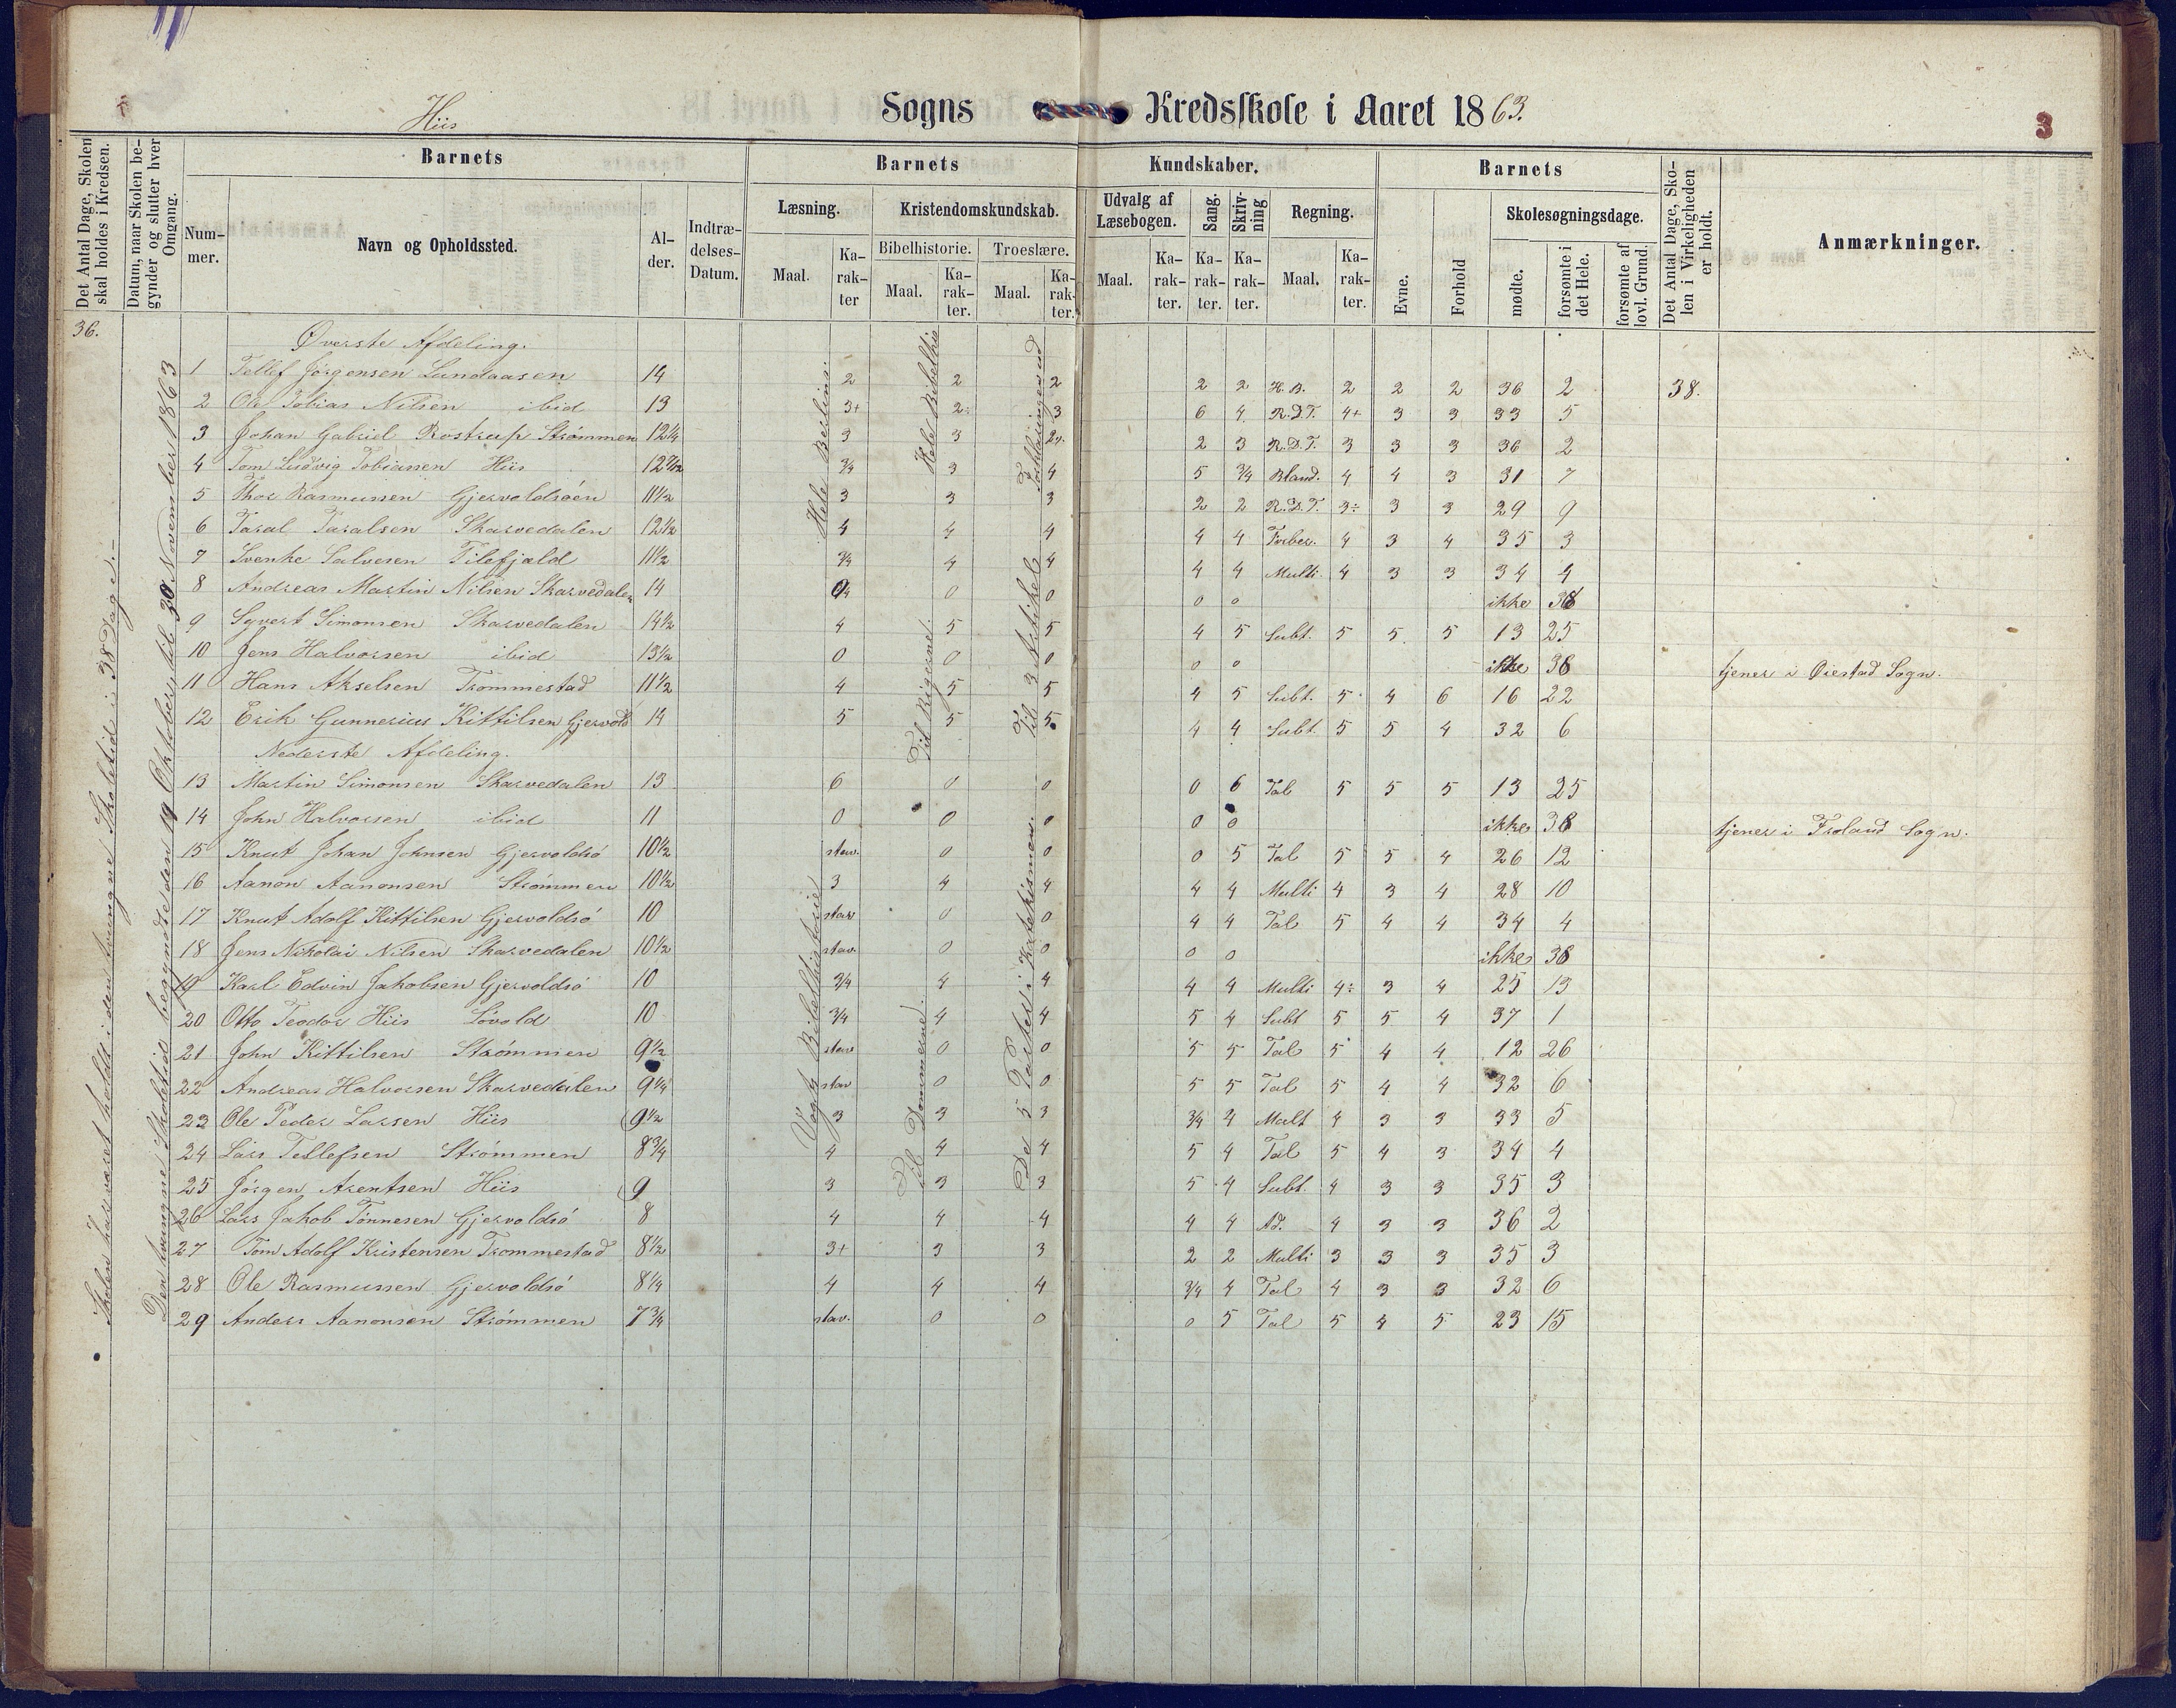 Hiis Sogns Kredsskole i Aaret 1863.
3
Det Antal Dage, Skolen skal holdes i Kredsen.
Datum, naar Skolen begynder og slutter hver Omgang.
Barnets
Nummer.
Navn og Opholdssted.
Alder.
Indtrædelses-Datum.
Barnets Kundskaber.
Læsning.
Maal.
Karakter
Kristendomskundskab.
Bibelhistorie.
Maal.
Karakter.
Troeslære.
Maal.
Karakter.
Udvalg af Læsebogen.
Maal.
Karakter.
Sang.
Karakter.
Skrivning
Karakter.
Regning.
Maal.
Karakter.
Barnets
Evne.
Forhold
Skolesøgningsdage.
mødte.
forsømte i det Hele.
forsømte af lovl. Grund.
Det Antal Dage, Skolen i Virkeligheden er holdt.
Anmærkninger.
36.
Skolen har været holdt i den tvungne Skoletid i 38 Dage.-
Den tvungne Skoletid begyndte den 19 Oktober til 30 November 1863
Hele Bibelhis
Til Rigerne.
Til 3 Artikel
Vogts Bibelhistorie
Til Dommerne.
De 5 Parter i Katekismen.
Øverste Afdeling.
1 Tellef Jørgensen Lundaasen 14 2 2 2 2 2 H.B. 2 2 2 36 2 38.
2 Ole Tobias Nilsen ibid 13 3+ 2÷ 3 6 4 R.D.T. 4+ 3 3 33 5
3 Johan Gabriel Rostrup Strømmen 12¼ 3 3 2 3 R.D.T. 3 3 3 36 2
4 Tom Ludvig Tobiassen Hiis ¾ 3 4 5 ¾ Bland. 4 4 3 31 7
5 Thor Rasmussen Gjervoldsøen 11½ 3 3 3 2 2 R.D.T. 3÷ 3 3 29 9
6 Taral Taralsen Skarvedalen 12½ 4 4 4 4 4 Forber. 4 3 4 35 3
7 Svenke Salvesen Tilefjeld 11½ ¾ 4 4 4 4 Multi. 4 3 3 34 4
8 Andreas Martin Nilsen Skarvedalen 14 0 0 0 0 ikke 38
9 Syvert Simonsen Skarvedalen 14½ 4 5 5 4 5 Subt. 5 5 5 13 25
10 Jens Halvorsen ibid 13½ 0 0 0 0 0 ikke 38 tjener i Øiestad Sogn.
11 Hans Akselsen Trommestad 11½ 4 5 5 4 5 Subt. 5 4 6 16 22
12 Erik Gunnerius Kittilsen Gjervolds 14 5 5 5 4 4 Subt. 5 5 4 32 6
Nederste Afdeling.
13 Martin Simonsen Skarvedalen 13 6 0 0 0 6 Tal 5 5 5 13 25
14 John Halvorsen ibid 11 0 0 0 0 0 ikke 38 tjener i Froland Sogn.
15 Knut Johan Johnsen Gjervoldsø 10½ stav. 0 0 0 5 Tal 5 5 4 26 12
16 Aanon Aanonsen Strømmen 10½ 3 4 4 4 4 Multi 4 3 4 28 10
17 Knut Adolf Kittilsen Gjervoldsø 10 stav 0 0 4 4 Tal 5 4 4 34 4
18 Jens Nikolai Nilsen Skarvedalen 10½ stav. 0 0 0 0 ikke 38
19 Karl Edvin Jakobsen Gjervoldsø 10 ¾ 4 4 4 4 Multi 4÷ 3 4 25 13
20 Otto Teodor Hiis Lóvold 10 ¾ 4 4 5 4 Subt 5 5 4 37 1
21 John Kittilsen Strømmen 9½ stav 0 0 5 5 Tal 5 4 4 12 26
22 Andreas Halvorsen Skarvedalen 9¼ stav 0 0 5 5 Tal 5 4 4 32 6
23 Ole Peder Larsen Hiis 9½ 3 3 3 ¾ 4 Mult 4 3 3 33 5
24 Lars Tellefsen Strømmen 8¾ 4 4 4 5 4 Tal 5 4 3 34 4
25 Jørgen Arentsen Hiis 9 3 3 3 5 4 Subt. 4 3 3 35 3
26 Lars Jakob Tønnesen Gjervoldsø 8 4 4 4 4 4 Ad. 4 3 3 36 2
27 Tom Adolf Kristensen Trommestad 8½ 3+ 3 3 2 2 Multi 3 3 3 35 3
28 Ole Rasmussen Gjervoldsø 8¼ 4 4 4 ¾ 4 Tal 4 3 3 32 6
29 Anders Aanonsen Strømmen 7¾ stav. 0 0 0 5 Tal 5 4 5 23 15